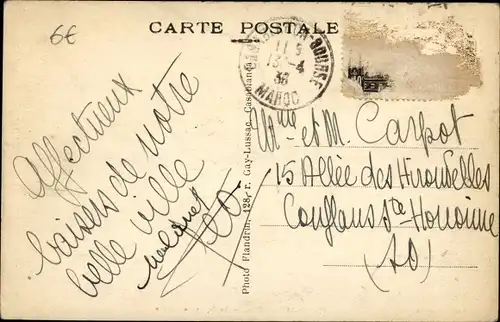 6€
CARTE POSTALE
CASABLANCA-BOURSE
13-4
38
MAROC
Affectueux
baisers de notre
belle ville
Photo Flandrin, 128, r. Gay-Lussac, Casablanca
et M. Carpot
15 Allée des Hirondelles
Conflans Ste Honorine
(SO)